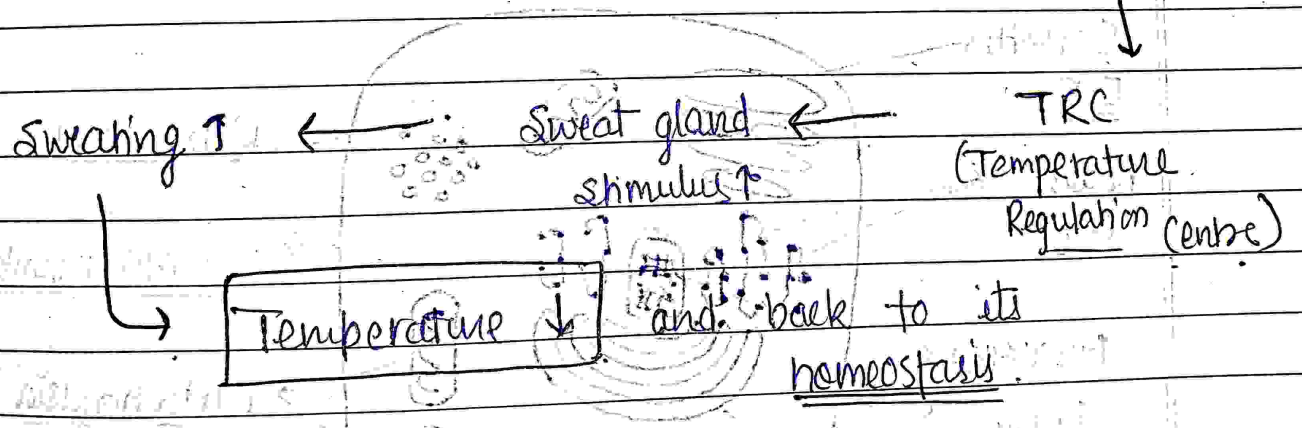 Sweating ↑ ← Sweat gland ← TRC
stimulus↑ (Temperature
Regulation Centre)
Temperature ↓ and back to its
homeostasis.